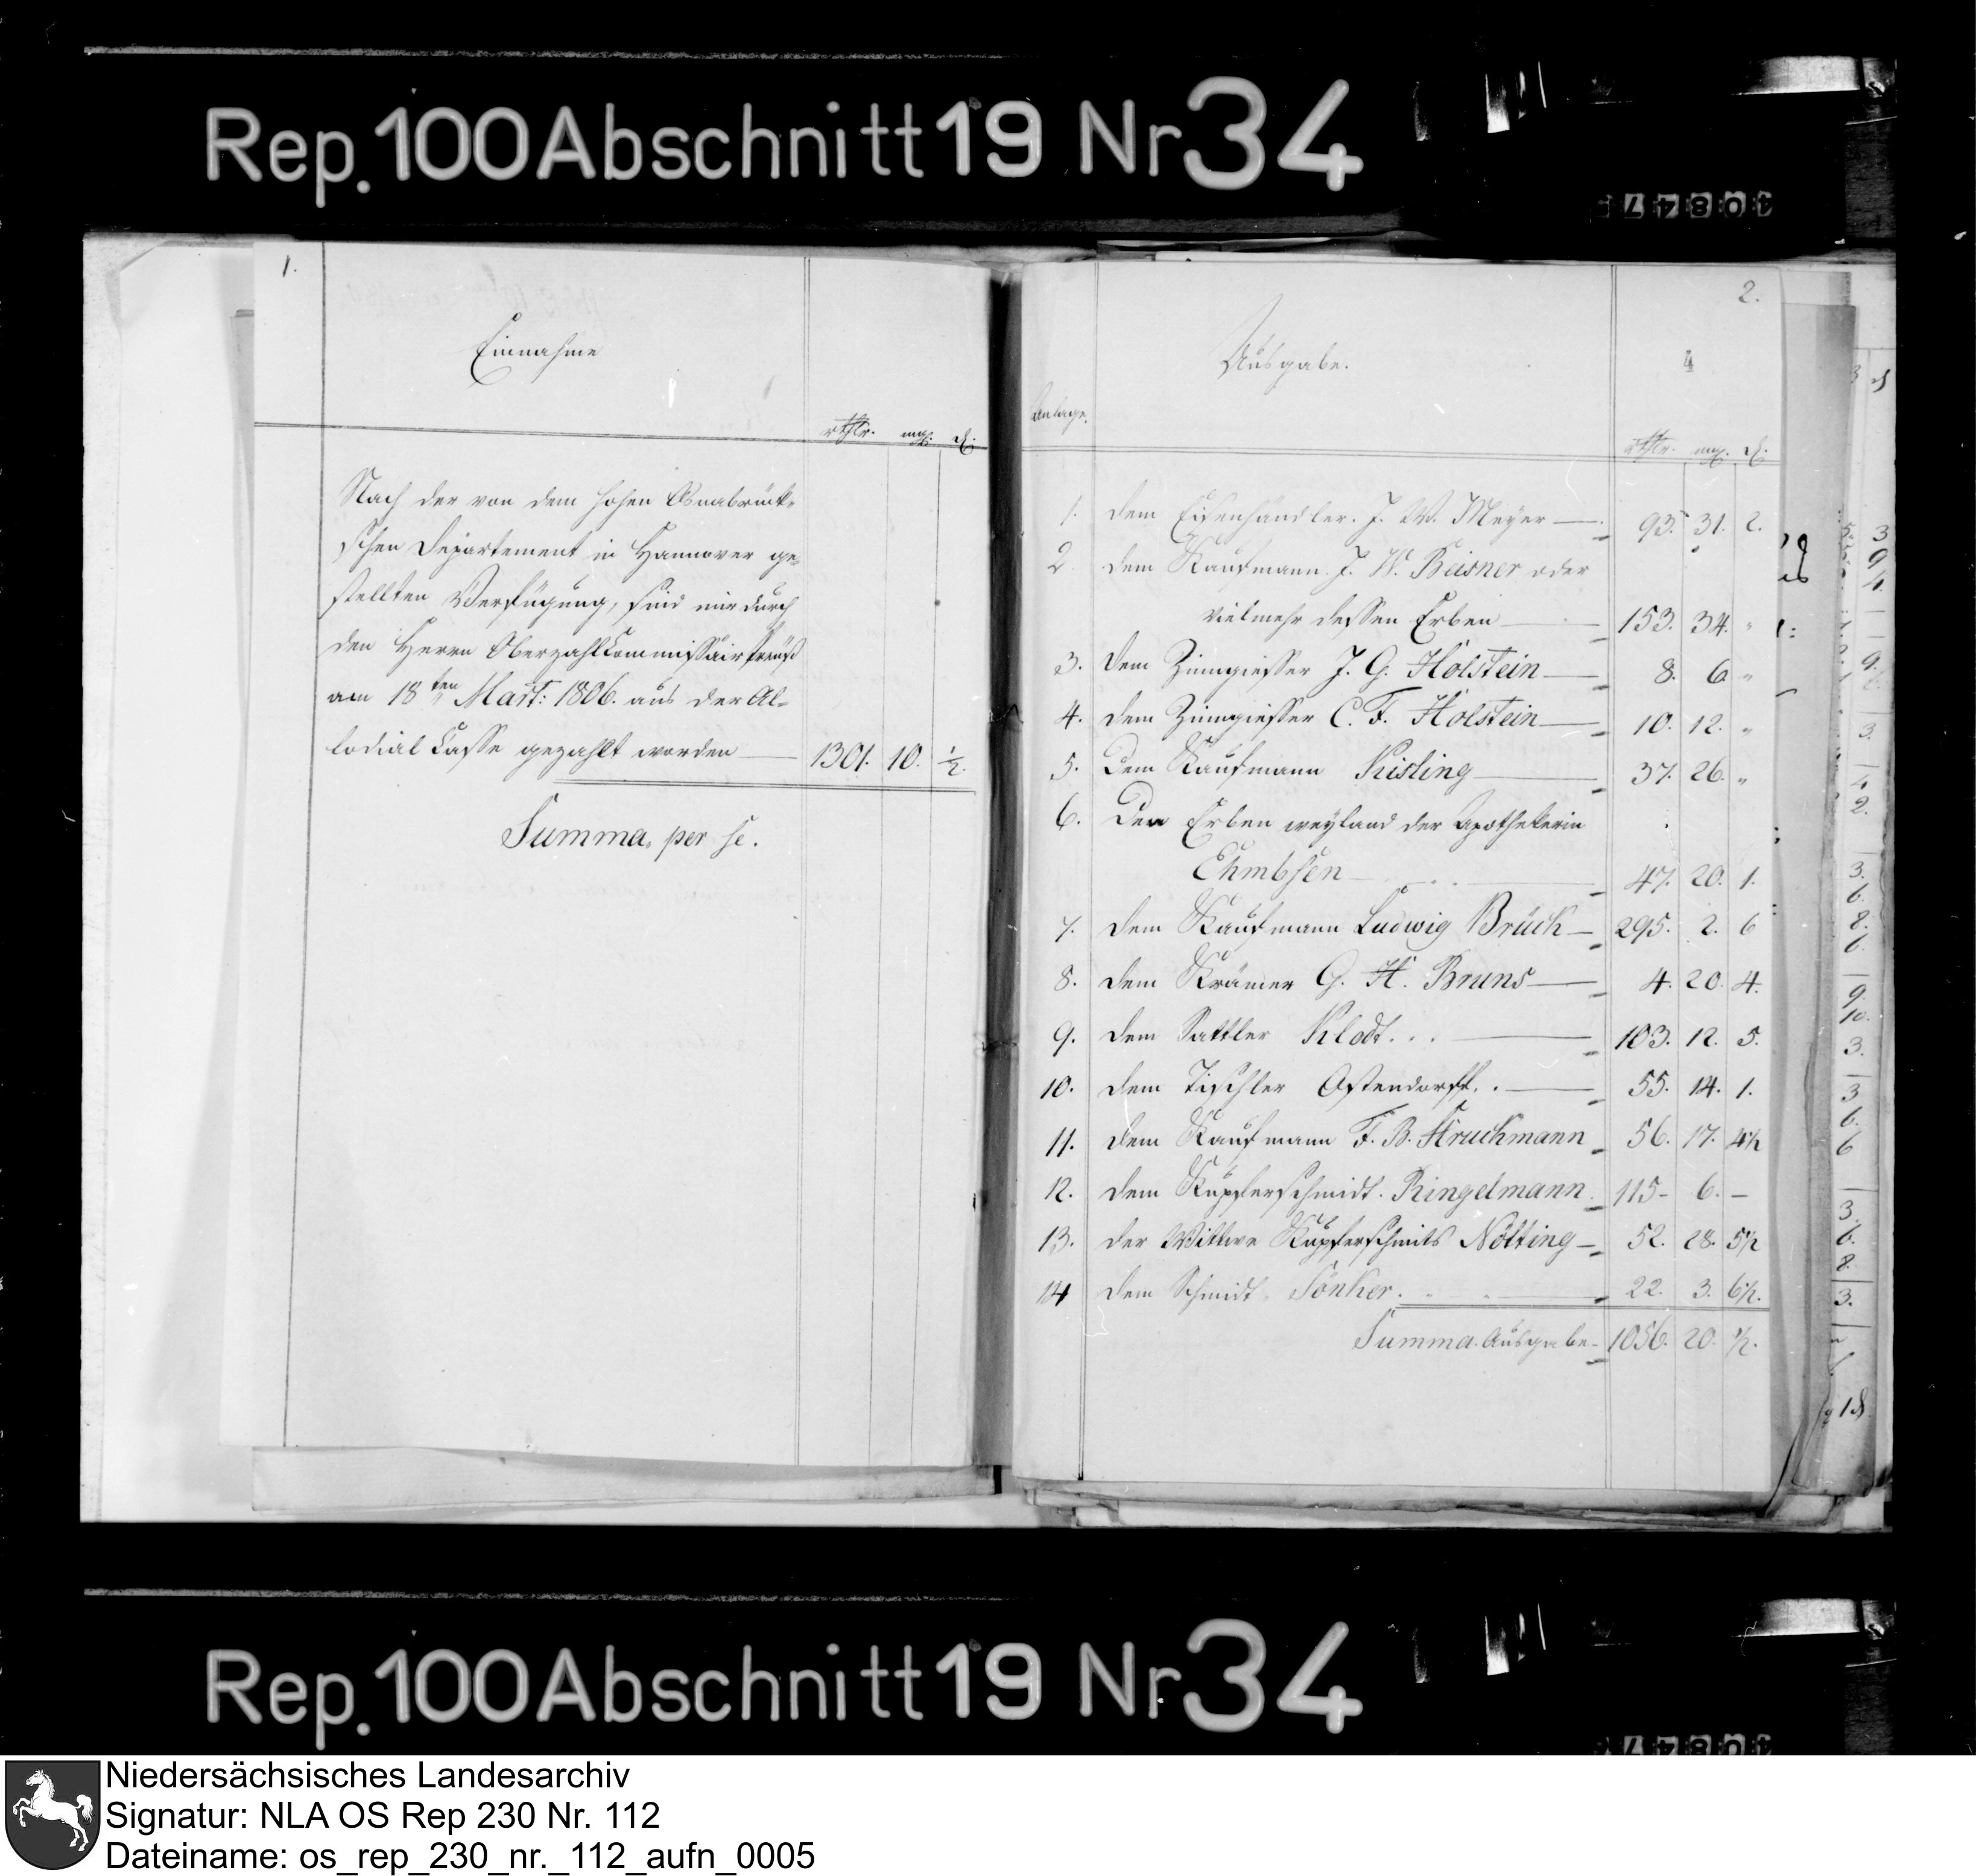 Rep. 100 Abschnitt 19 Nr 34
40847
1.
Einnahme
rthlr. mgl. d.
Nach der von dem hohen Osnabrück-
schen Departement in Hannover ge-
stellten Verfügung, sind mir durch
den Herrn Oberzahlcommissair Preuß
am 18ten Mart: 1806. aus der Al-
lodial Casse gezahlt worden — 1301. 10. ½.
Summa. per se.
2.
Ausgabe.
4
Anlage.
rthlr. mgl. d.
1. dem Eisenhändler. J. W. Meyer — 93. 31. 2.
2. dem Kaufmann J. W. Beisner oder
vielmehr dessen Erben — 153. 34. "
3. dem Zinngiesser J. G. Holstein — 8. 6. "
4. dem Zinngiesser C. F. Holstein — 10. 12. "
5. dem Kaufmann Kisling — 37. 26. "
6. Den Erben weyland der Apothekerin
Ehmbsen — 47. 20. 1.
7. dem Kaufmann Ludwig Brück — 295. 2. 6
8. dem Krämer G. H. Bruns — 4. 20. 4.
9. dem Sattler Klodt... — 103. 12. 5.
10. dem Tischler Ostendorff.. — 55. 14. 1.
11. dem Kaufmann F. B. Struckmann 56. 17. 4½
12. dem Kupferschmidt. Ringelmann 115- 6. -
13. der Wittwe Kupferschmits Nölting — 52. 28. 5½
14 dem Schmidt Sönker. — 22. 3. 6½.
Summa. Ausgabe - 1056. 20. ½.
Rep. 100 Abschnitt 19 Nr 34
40847
Niedersächsisches Landesarchiv
Signatur: NLA OS Rep 230 Nr. 112
Dateiname: os_rep_230_nr._112_aufn_0005